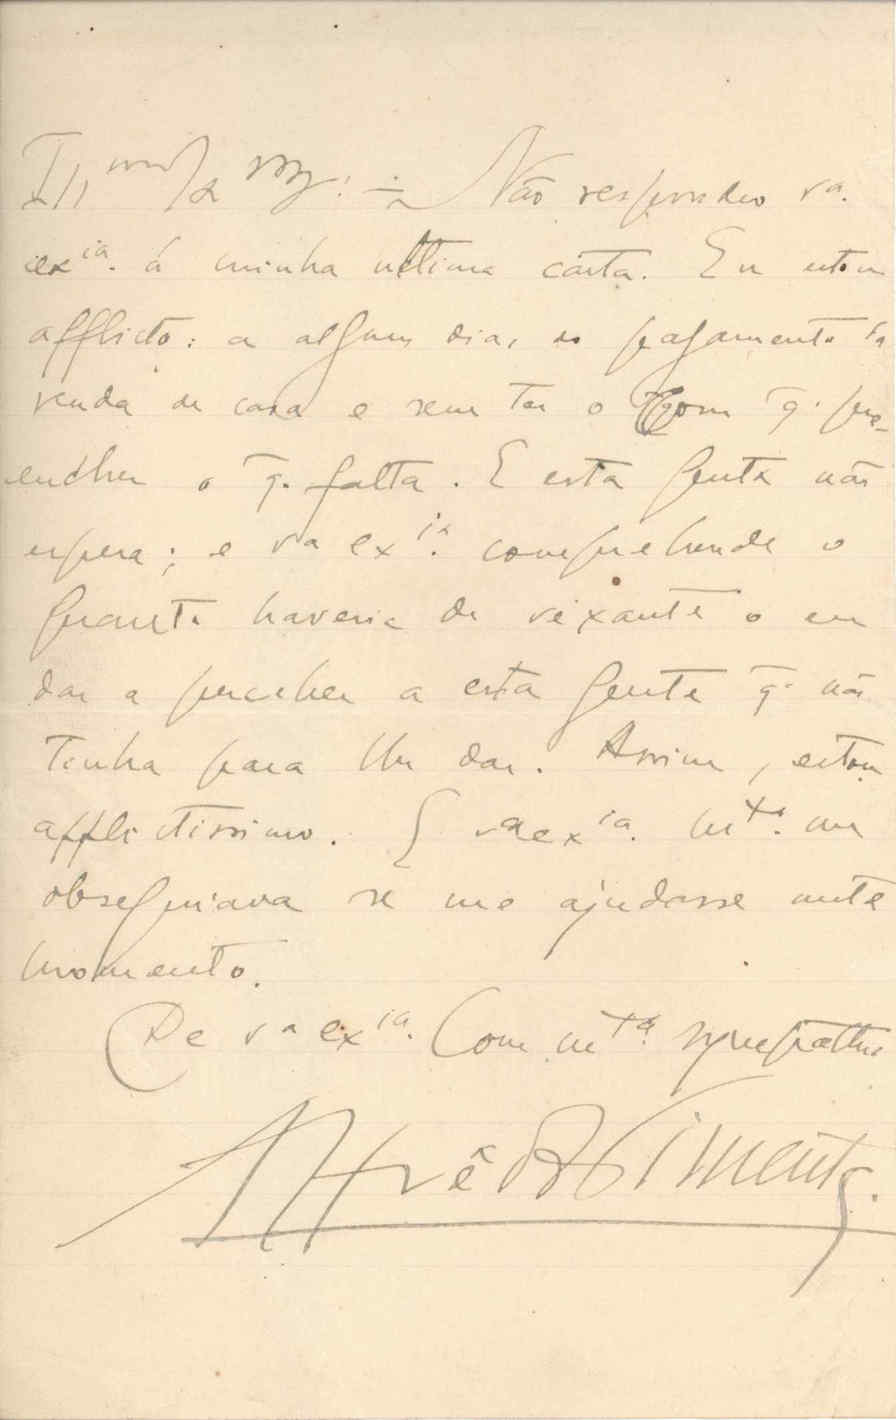 Ill.mo Sr. : — Não respondeu va.
exia. á minha ultima carta. Eu estou
afflicto: a alguns dias do pagamento da
renda da casa e sem ter o com q. pre-
encher o q. falta. E esta gente não
espera; e va exia. comprehende o
quanto haveria de vexante o eu
dar a perceber a esta gente q. não
tenha para lhe dar. Assim, estou
afflictissimo. E va exia. mto. me
obsequiava se me ajudasse neste
momento.
De va exia. Com mta. sympathia
Alfrêdo Pimenta.